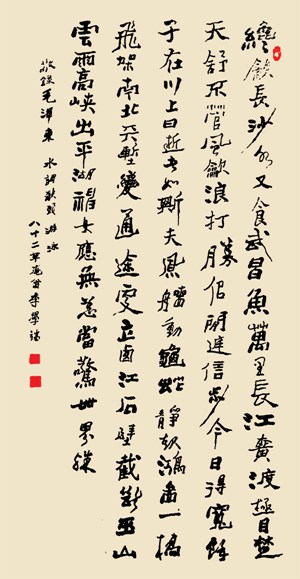 纔飲長沙水又食武昌魚萬里長江橫渡極目楚
天舒不管風浪打勝似閒庭信步今日得寬餘
子在川上曰逝者如斯夫風檣動龜蛇靜起鴻圖一橋
飛架南北天塹變通途更立西江石壁截斷巫山
雲雨高峽出平湖神女應無恙當驚世界殊
敬錄毛澤東 水調歌頭 游泳
八十二年李學